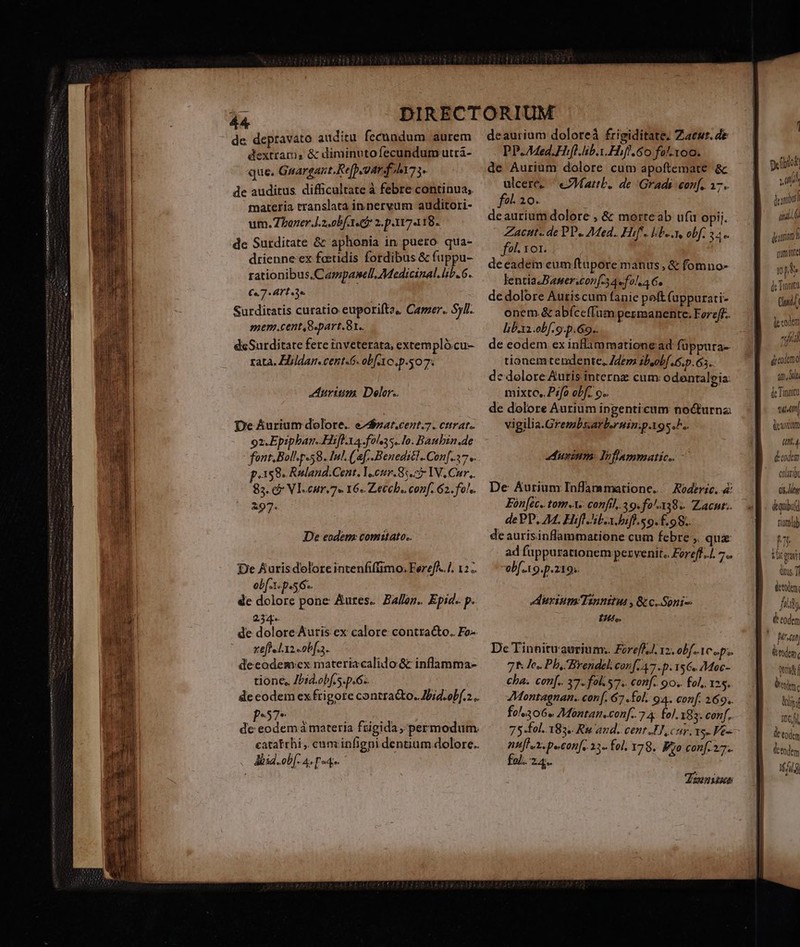 44 DIRECTORIUM
de depravato auditu secundum aurem
dextram, & diminuto secundum utrã-
que. Guargant.Respovar.f.
de auditus difficultate à febre continua,
materia translata in nervum auditori-
um. Thoner.l.2.obs.1.& 2.p.117.118.
de Surditate & aphonia in puero qua-
drienne ex fœtidis sordibus & suppu-
rationibus. Campanell. Medicinal.lib.6.
c.7.art.3.
Surditatis curatio euporista, Camer. Syll.
mem.cent.8.part.81.
de Surditate fere inveterata, extemplò cu-
rata. Hildan.cent.6.obs.10.p.507.
Aurium Dolor.
De Aurium dolore. Amat.cent.7. curat.
92. Epiphan. Hist.14.fol.35. Io. Bauhin.de
font.Boll.p.58. Iul. Cæs. Benedict. Cons.37.
p.158. Ruland.Cent. I.cur.85.& IV. Cur.
83. & VI.cur.7. 16. Zecch. cons. 62. fol.
297.
De eodem comitato.
De Auris dolore intensissimo. Forest. l. 12.
obs.1.p.56.
de dolore pone Aures. Ballon. Epid. p.
234.
de dolore Auris ex calore contracto. Fo-
rest.l.12.obs.3.
de eodem ex materia calido & inflamma-
tione, Ibid.obs.5.p.62.
de eodem ex frigore contracto. Ibid.obs.2.
p.57.
de eodem à materia frigida, per modum
catarrhi, cum insigni dentium dolore.
Ibid.obs. 4. p.4.
de aurium doloreà frigiditate. Zacut. de
PP. Med. Hist.lib.1.Hist.60 fol.100.
de Aurium dolore cum apostemate &
ulcere, Matth. de Gradi cons. 17.
fol. 20.
de aurium dolore, & morte ab usu opij.
Zacut. de PP. Med. Hist. lib.1. obs. 34.
fol. 101.
de eadem cum stupore manus, & somno-
lentia. Bauer.cons.34.fol.46.
de dolore Auris cum sanie post suppurati-
onem & abscessum permanente. Forest.
lib.12.obs.9.p.69.
de eodem ex inflammatione ad suppura-
tionem tendente, Idem ib.obs.6.p.63.
de dolore Auris internæ cum odontalgia
mixto. Piso obs. 9.
de dolore Aurium ingenti cum nocturna
vigilia. Grembs.arb.ruin.p.195.b.
Aurium Inflammatio.
De Aurium Inflammatione. Roderic. à
Fonsec. tom.1. consil. 39. fol.138. Zacut.
de PP. M. Hist.lib.1.hist.59.f.98.
de auris inflammatione cum febre, quæ
ad suppurationem pervenit. Forest.l. 7.
obs.19.p.219.
Aurium Tinnitus, &c. Soni-
tus.
De Tinnitu aurium. Forest.l. 12. obs.10.p.
75. Io. Ph. Brendel. cons.47.p.156. Moc-
cha. cons. 37. fol.57. cons. 90. fol. 125.
Montagnan. cons. 67. fol. 94. cons. 269.
fol.306. Montan.cons.74. fol.183. cons.
75.fol. 183. Ru and. cent.II, cur. 15. Ve-
nust.2.p.cons. 23. fol. 178. Vzo cons.27.
fol. 24.
Tinnitus